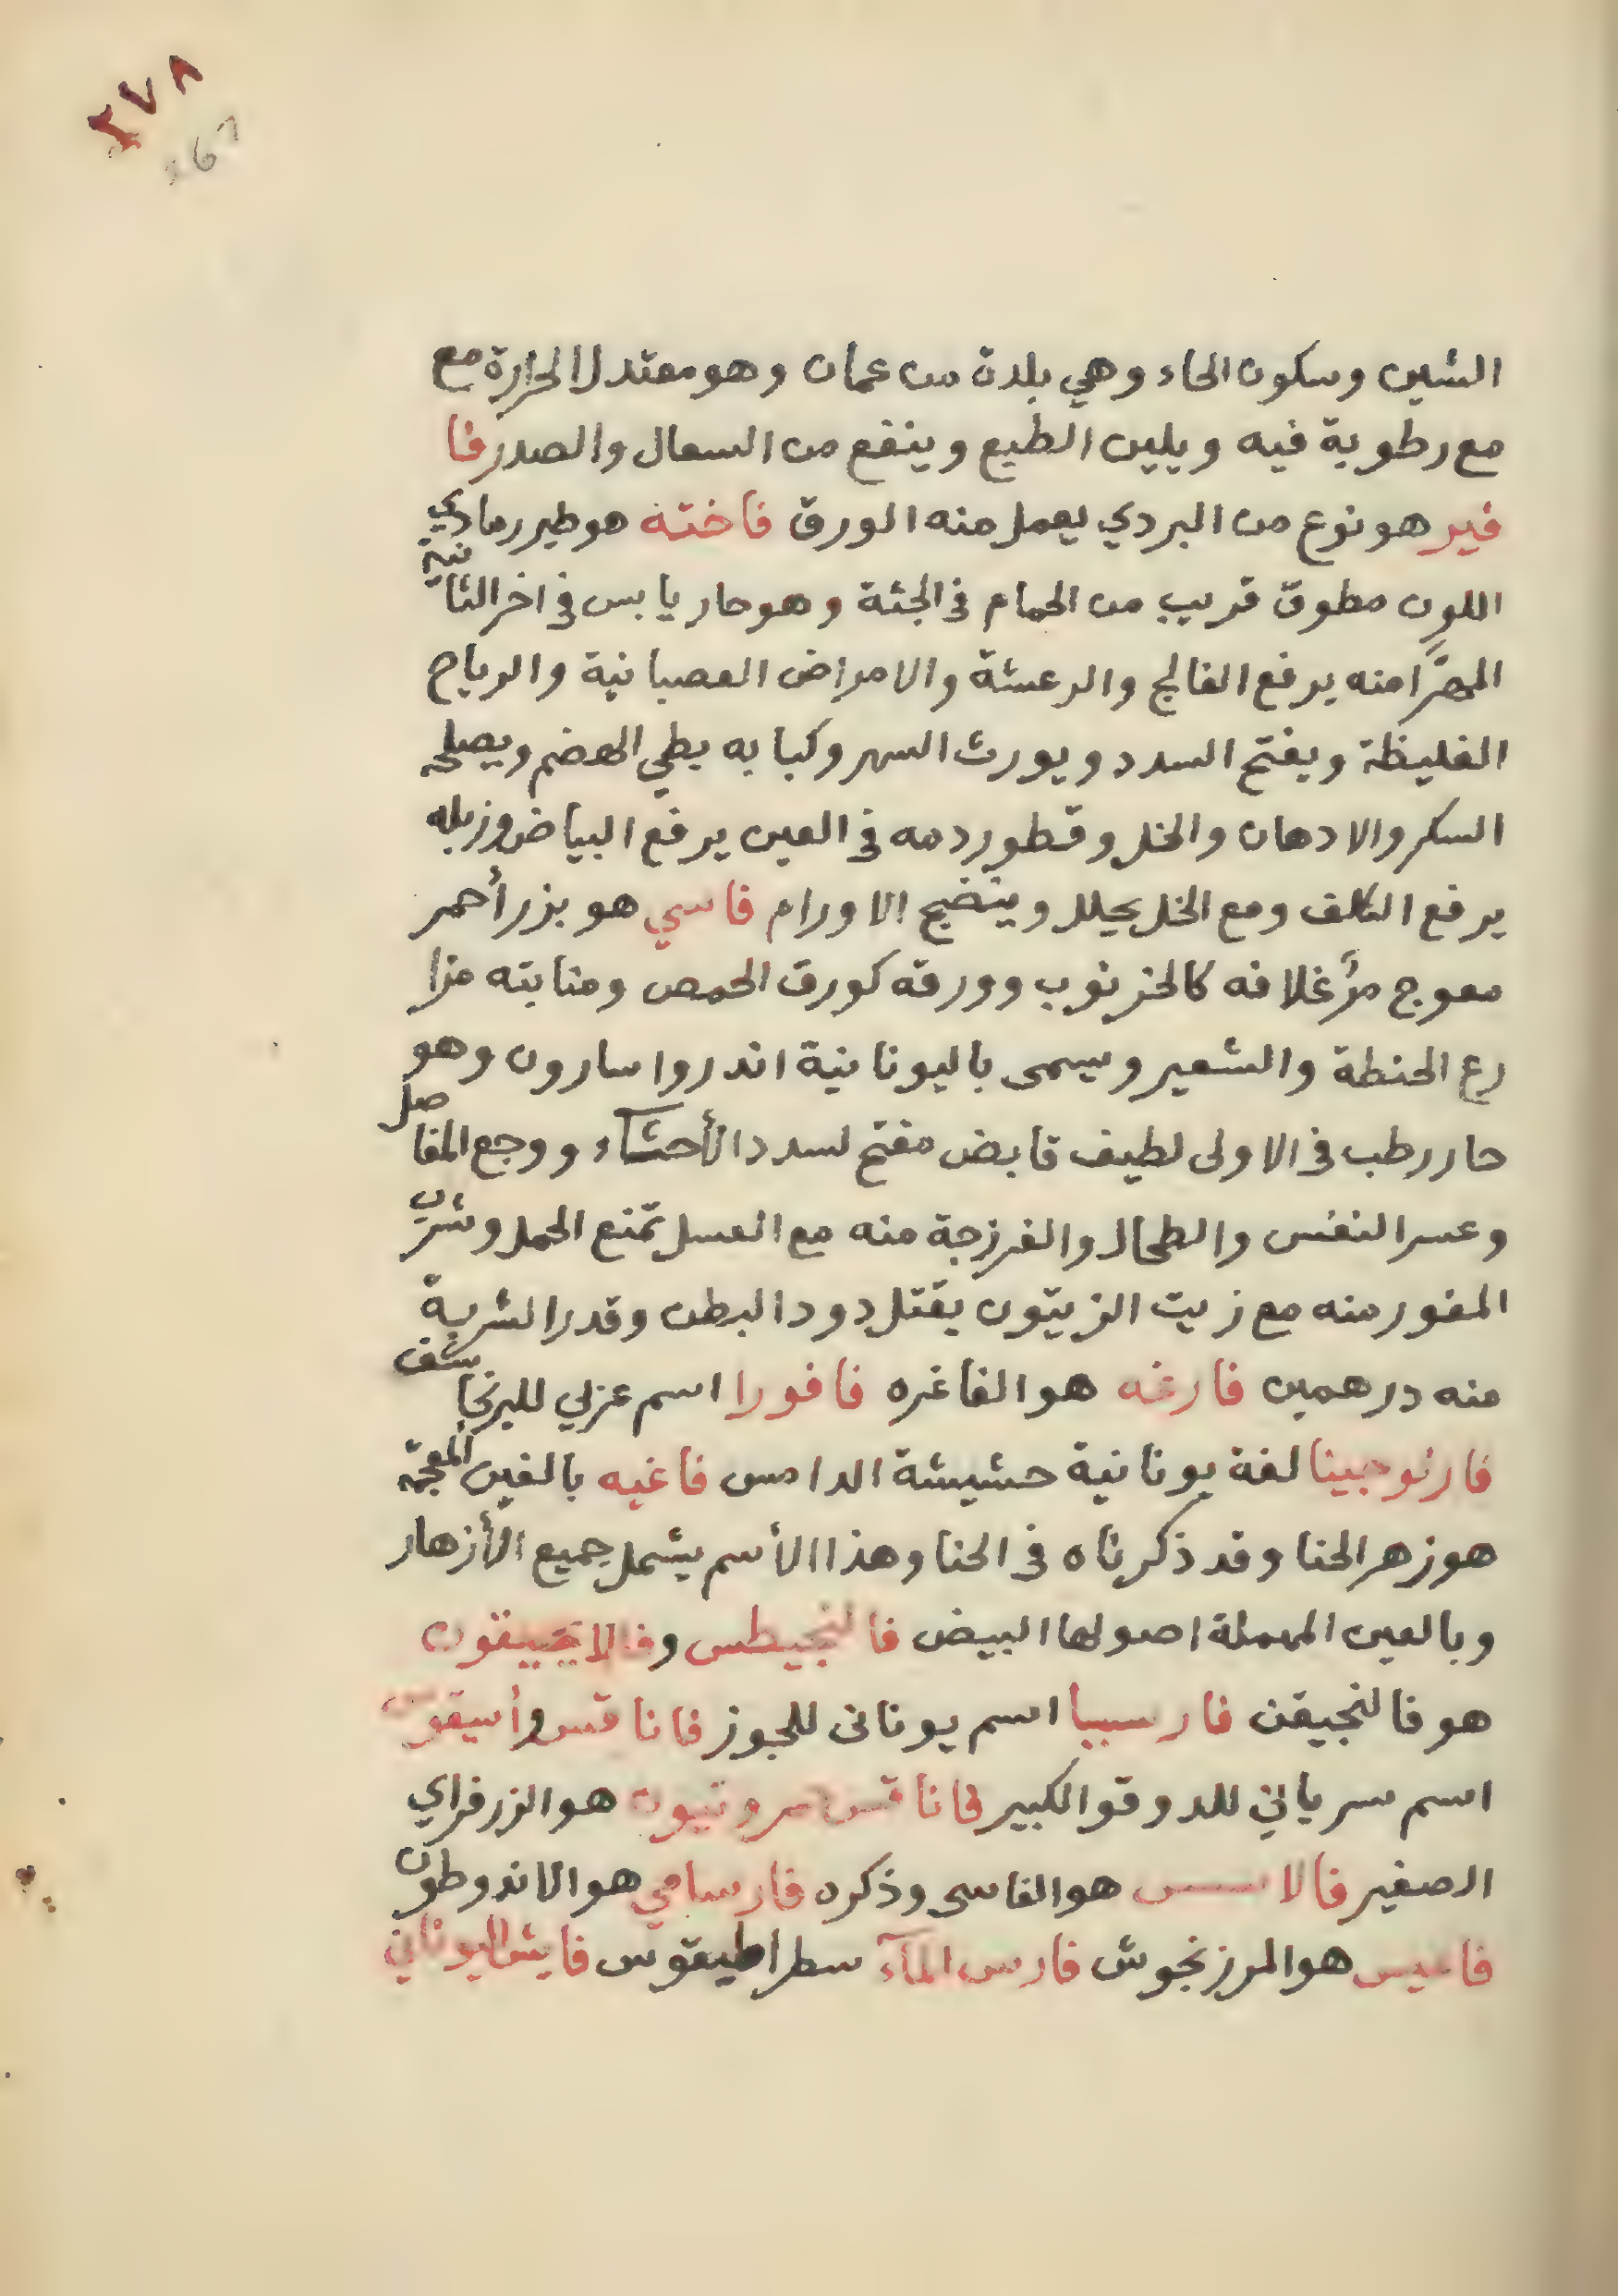 ٢٧٨
267
الشين وسكون الحاء وهي بلدة من عمان وهو معتدل الحرارة مع
مع رطوبة فيه ويلين الطبع وينفع من السعال والصدر فا
فير هو نوع من البردي يعمل منه الورق فاخته هو طير رمادي
اللون مطوق قريب من الحمام فى الجثة وهو حار يابس فى اخر الثانية
المهرّا منه يرفع الفالج والرعشة والامراض العصبانية والرياح
الغليظة ويفتح السدد ويورث السهر وكبابه بطي الهضم ويصلحه
السكر والادهان والخل وقطور دمه فى العين يرفع البياض وزبله
يرفع الكلف ومع الخل يحلل وينضج الاورام فاسي هو بزر أحمر
معوج مرّ غلافه كالخرنوب وورقه كورق الحمص ومنابته مزا
رع الحنطة والشعير ويسمى باليونانية اندروا سارون وهو
حار رطب فى الاولى لطيف قابض مفتح لسدد الأحشآء ووجع المفاصل
وعسر النفس والطحال والفرزجة منه مع العسل تمنع الحمل وشرب
المفور منه مع زيت الزيتون يقتل دود البطن وقدر الشربة
منه درهمين فارغه هو الفاغره فافورا اسم عزلي للبرنجاسف
فارنوجينا لغة يونانية حشيشة الدامس فاغيه بالغين المعجمة
هو زهر الحنا وقد ذكرناه فى الحنا وهذا الأسم يشمل جميع الأزهار
وبالعين المهملة اصولها البيض فالنجيطس و
هو فالنجيقن فارسبيا اسم يونانى للجوز فاناقس وأسيقون
اسم سرياني للدوقو الكبير فاناقس هو الزرفراي
الصغير هو الفاسى وذكره فارسامي هو الاندوطون
هو المرزنجوش فارس المآء سطراطيقوس اليوناني